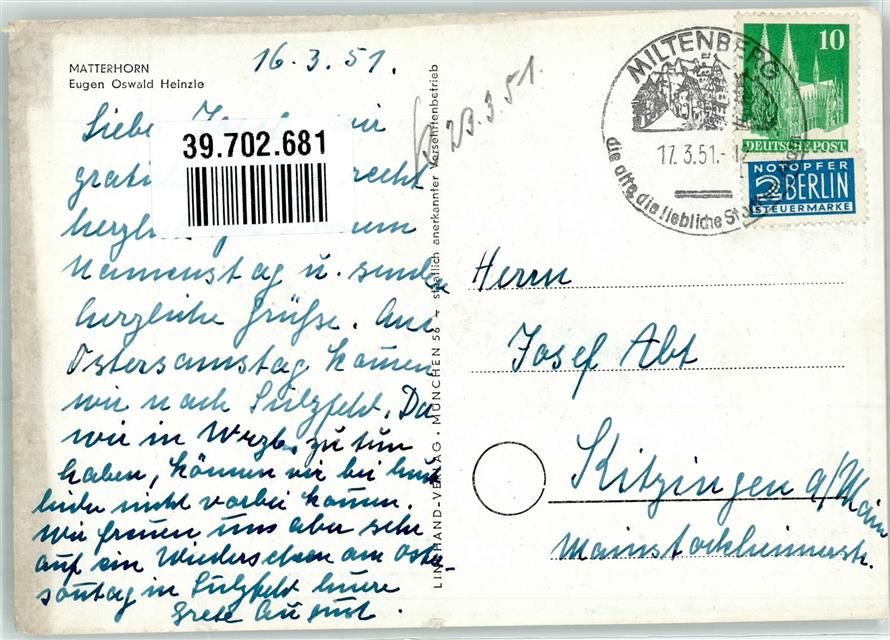 MATTERHORN
Eugen Oswald Heinzle
16.3.51.
39.702.681
Liebe wir
recht
herzl um
Namenstag u. senden
herzliche Grüße. Am
Ostersamstag kommen
wir nach Sulzfeld. Da
wir in Wrzb. zu tun
haben, können wir bei
leider nicht vorbei kommen.
Wir freuen uns aber sehr
auf ein Wiedersehen am Oster-
sontag in Sulzfeld
Grete August.
23.3.51.
LINDHAND-VERLAG · MÜNCHEN 56 staatlich anerkannter Versehrtenbetrieb
MILTENBERG
17.3.51.-
die alte, die liebliche
10
DEUTSCHE POST
NOTOPFER
2 BERLIN
STEUERMARKE
Herrn
Josef Abt
Kitzingen a/Main
Mainstockheimerstr.